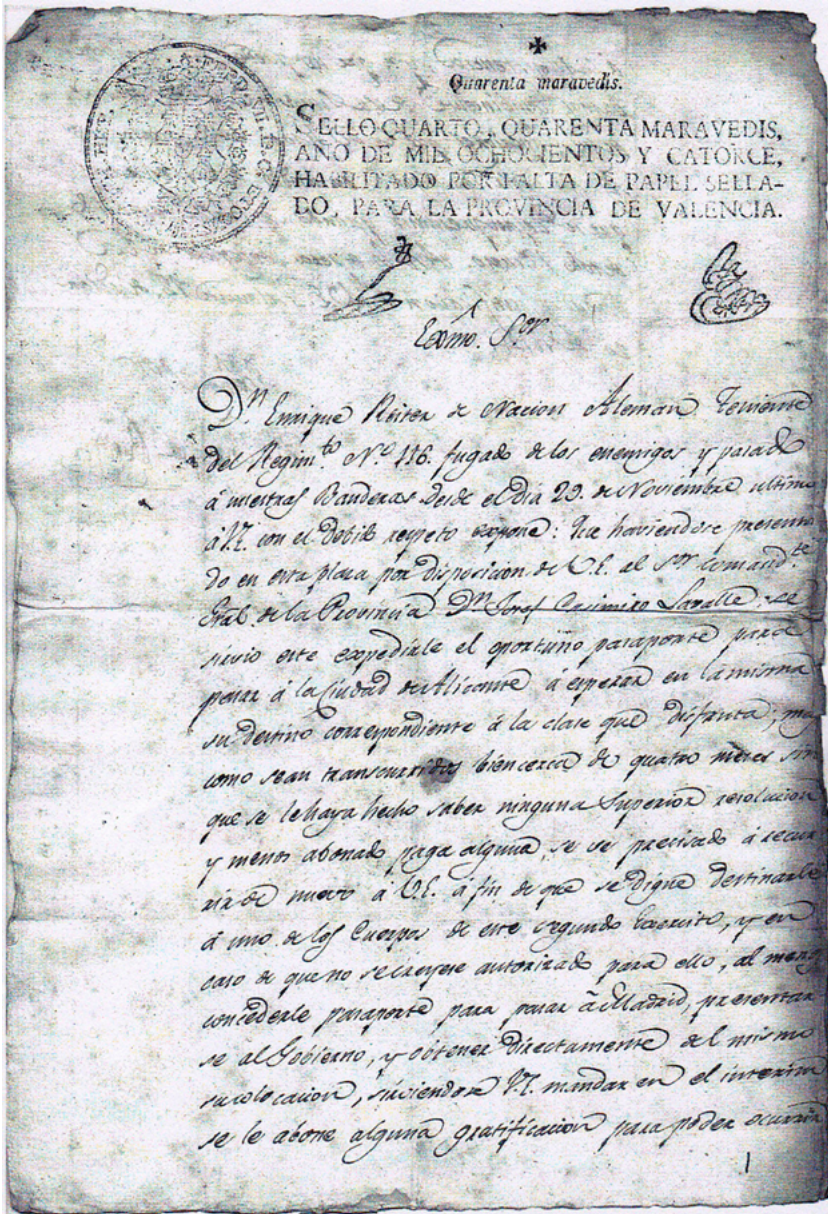 Quarenta maravedis.
SELLO QUARTO, QUARENTA MARAVEDIS,
AÑO DE MIL OCHOCIENTOS Y CATORCE,
HABILITADO POR FALTA DE PAPEL SELLA-
DO, PARA LA PROVINCIA DE VALENCIA.
Exmo. Sor
Dn Enrique Reiter de Nacion Aleman Teniente
del Regimto No 116. fugado de los enemigos y pasado
á nuestras Banderas desde el dia 29. de Noviembre ultimo
á V.E. con el debido respeto expone: Que haviendose presenta
do en esta plaza por disposicion de V.E. al Sor Comandte
Gral. de la Provincia Dn Josef Casimiro Lavalle, se
sirvio este expedirle el oportuno pasaporte para
pasar á la Ciudad de Alicante á esperar en la misma
su destino correspondiente á la clase que disfruta; mas
como sean transcurridos bien cerca de quatro meses sin
que se le haya hecho saber ninguna Superior resolucion
y menos abonado paga alguna, se vé precisado á recur
rir de nuevo á V.E. á fin de que se digne destinarle
á uno de los Cuerpos de este segundo Exercito, y en
caso de que no se creyese autorizado para ello, al menos
concederle pasaporte para pasar á Madrid, presentar
se al Gobierno, y obtener directamente del mismo
su colocacion, sirviendose V.E. mandar en el interin
se le abone alguna gratificacion para poder ocurrir
1